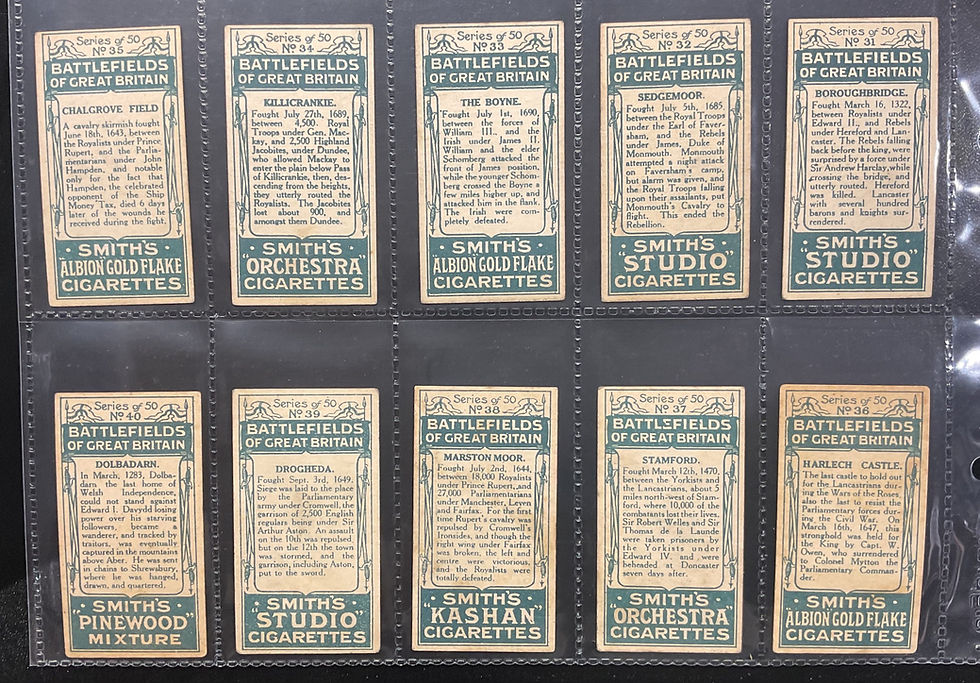 Series of 50
Nº 35
BATTLEFIELDS
OF GREAT BRITAIN
CHALGROVE FIELD
A cavalry skirmish fought
June 18th, 1643, between
the Royalists under Prince
Rupert, and the Parlia-
mentarians under John
Hampden, and notable
only for the fact that
Hampden, the celebrated
opponent of the Ship
Money Tax, died 6 days
later of the wounds he
received during the fight.
SMITH'S
"ALBION" GOLD FLAKE
CIGARETTES
Series of 50
Nº 34
BATTLEFIELDS
OF GREAT BRITAIN
KILLICRANKIE.
Fought July 27th, 1689,
between 4,500 Royal
Troops under Gen. Mac-
kay, and 2,500 Highland
Jacobites, under Dundee,
who allowed Mackay to
enter the plain below Pass
of Killicrankie, then, des-
cending from the heights,
they utterly routed the
Royalists. The Jacobites
lost about 900, and
amongst them Dundee.
SMITH'S
"ORCHESTRA"
CIGARETTES
Series of 50
Nº 33
BATTLEFIELDS
OF GREAT BRITAIN
THE BOYNE.
Fought July 1st, 1690,
between the forces of
William III., and the
Irish under James II.
William and the elder
Schomberg attacked the
front of James position,
while the younger Schom-
berg crossed the Boyne a
few miles higher up, and
attacked him in the flank.
The Irish were com-
pletely defeated.
SMITH'S
"ALBION" GOLD FLAKE
CIGARETTES
Series of 50
Nº 32
BATTLEFIELDS
OF GREAT BRITAIN
SEDGEMOOR.
Fought July 5th, 1685,
between the Royal Troops
under the Earl of Faver-
sham, and the Rebels
under James, Duke of
Monmouth. Monmouth
attempted a night attack
on Faversham's camp,
but alarm was given, and
the Royal Troops falling
upon their assailants, put
Monmouth's Cavalry to
flight. This ended the
Rebellion.
SMITH'S
"STUDIO"
CIGARETTES
Series of 50
Nº 31
BATTLEFIELDS
OF GREAT BRITAIN
BOROUGHBRIDGE.
Fought March 16, 1322,
between Royalists under
Edward II., and Rebels
under Hereford and Lan-
caster. The Rebels falling
back before the king, were
surprised by a force under
Sir Andrew Harclay, while
crossing the bridge, and
utterly routed. Hereford
was killed. Lancaster
with several hundred
barons and knights sur-
rendered.
SMITH'S
"STUDIO"
CIGARETTES
Series of 50
Nº 40
BATTLEFIELDS
OF GREAT BRITAIN
DOLBADARN.
In March, 1283, Dolba-
darn the last home of
Welsh Independence,
could not stand against
Edward I. Davydd losing
power over his starving
followers, became a
wanderer, and tracked by
traitors, was eventually
captured in the mountains
above Aber. He was sent
in chains to Shrewsbury,
where he was hanged,
drawn, and quartered.
SMITH'S
"PINEWOOD"
MIXTURE
Series of 50
Nº 39
BATTLEFIELDS
OF GREAT BRITAIN
DROGHEDA.
Fought Sept. 3rd, 1649.
Siege was laid to the place
by the Parliamentary
army under Cromwell, the
garrison of 2,500 English
regulars being under Sir
Arthur Aston. An assault
on the 10th was repulsed,
but on the 12th the town
was stormed, and the
garrison, including Aston,
put to the sword.
SMITH'S
"STUDIO"
CIGARETTES
Series of 50
Nº 38
BATTLEFIELDS
OF GREAT BRITAIN
MARSTON MOOR.
Fought July 2nd, 1644,
between 18,000 Royalists
under Prince Rupert, and
27,000 Parliamentarians
under Manchester, Leven
and Fairfax. For the first
time Rupert's cavalry was
repulsed by Cromwell's
Ironsides, and though the
right wing under Fairfax
was broken, the left and
centre were victorious,
and the Royalists were
totally defeated.
SMITH'S
"KASHAN"
CIGARETTES
Series of 50
Nº 37
BATTLEFIELDS
OF GREAT BRITAIN
STAMFORD.
Fought March 12th, 1470,
between the Yorkists and
the Lancastrians, about 5
miles north-west of Stam-
ford, where 10,000 of the
combatants lost their lives.
Sir Robert Welles and Sir
Thomas de la Launde
were taken prisoners by
the Yorkists under
Edward IV. and were
beheaded at Doncaster
seven days after.
SMITH'S
"ORCHESTRA"
CIGARETTES
Series of 50
Nº 36
BATTLEFIELDS
OF GREAT BRITAIN
HARLECH CASTLE.
The last castle to hold out
for the Lancastrians dur-
ing the Wars of the Roses,
also the last to resist the
Parliamentary forces dur-
ing the Civil War. On
March 16th, 1647, this
stronghold was held for
the King by Capt. W.
Owen, who surrendered
to Colonel Mytton the
Parliamentary Comman-
der.
SMITH'S
"ALBION" GOLD FLAKE
CIGARETTES